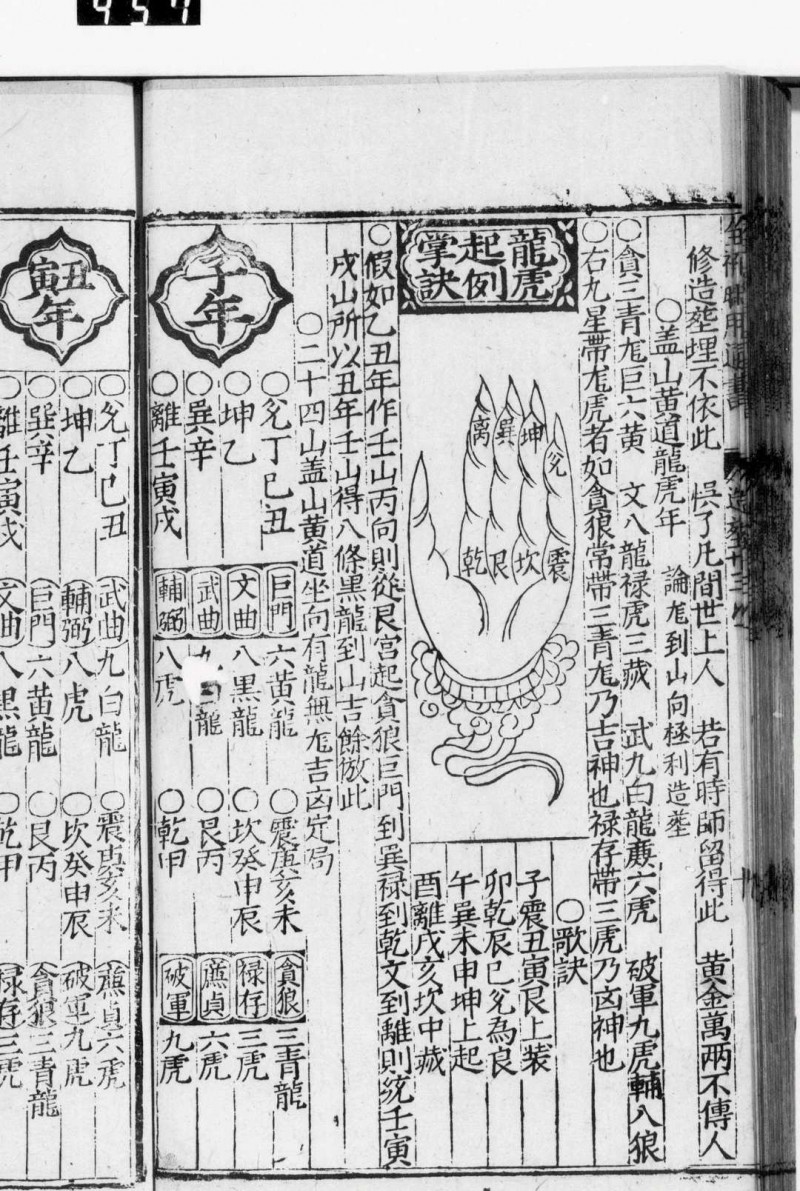 457
修造𦵏埋不依此　悞了凡間世上人　若有時師留得此　黃金萬兩不傳人
○盖山黃道龍虎年　論尨到山向極利造𦵏
○貪三青尨巨六黃　文八龍禄虎三藏　武九白龍廉六虎　破軍九虎輔八狼
○右九星帶尨虎者如貪狼常帶三青尨乃吉神也禄存帶三虎乃凶神也
龍虎
起例
掌訣
離 巽 坤 兌
乾 艮 坎 震
○歌訣
子震丑寅艮上装
卯乾辰巳兌為良
午巽未申坤上起
酉離戌亥坎中藏
○假如乙丑年作壬山丙向則從艮宮起貪狼巨門到巽禄到乾文到離則統壬寅
戌山所以丑年壬山得八條黑龍到山吉餘倣此
○二十四山盖山黃道坐向有龍無尨吉凶定局
子年
○兌丁巳丑　巨門　六黃龍　○震庚亥未　貪狼　三青龍
○坤乙　文曲　八黑龍　○坎癸申辰　禄存　三虎
○巽辛　武曲　九　龍　○艮丙　廉貞　六虎
○離壬寅戌　輔弼　八虎　○乾甲　破軍　九虎
丑寅年
○兌丁巳丑　武曲　九白龍　○震庚亥未　廉貞　六虎
○坤乙　輔弼　八虎　○坎癸申辰　破軍　九虎
○巽辛　巨門　六黃龍　○艮丙　貪狼　三青龍
○離壬寅戌　文曲　八黑龍　○乾甲　禄存　三虎